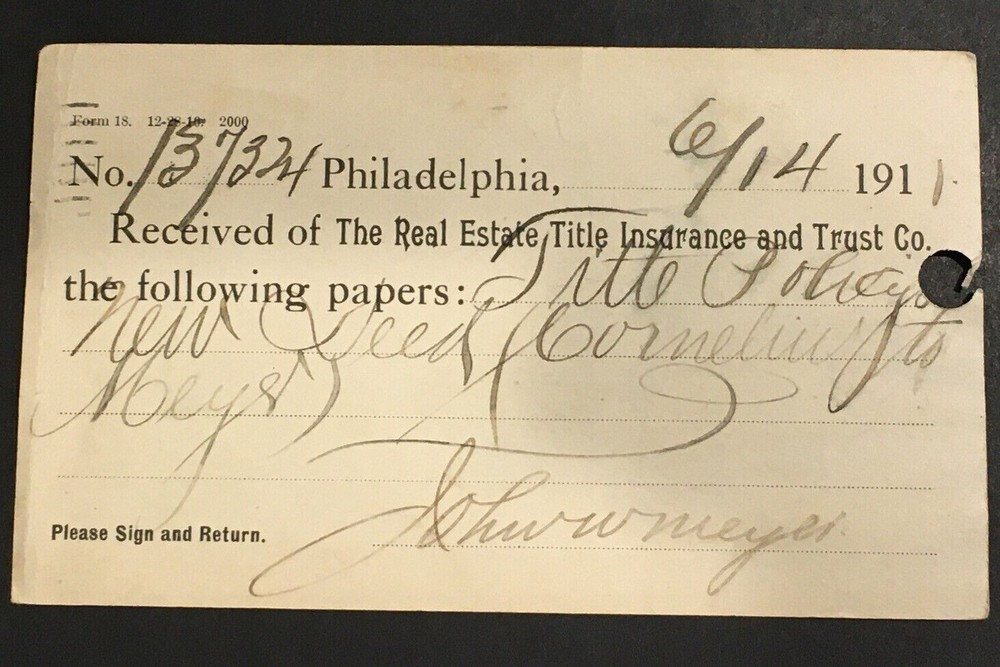 Form 18. 12-28-10. 2000
No. 13734 Philadelphia, 6/14 1911
Received of The Real Estate Title Insurance and Trust Co.
the following papers: Title Policy &
New Deed (Cornelius to
Meyer)
John W Meyer
Please Sign and Return.